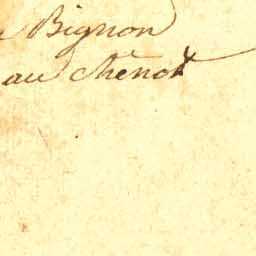 Bignon
au chênot